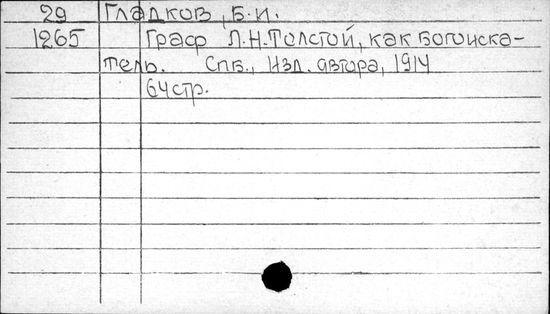 29 Гладков, Б.И.
1265 Граф Л.Н.Толстой, как богоиска-
тель. Спб., Изд. автора, 1914
64стр.